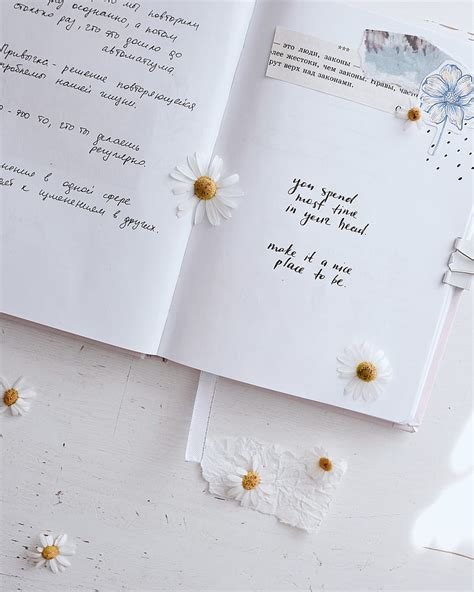 мы, повторили
осознанно, а потом
столько раз, что это дошло до
автоматизма.
Привычка - решение повторяющейся
проблемы нашей жизни.
- это то, что ты делаешь
регулярно.
в одной сфере
к изменениям в других.
***
это люди, законы
лее жестоки, чем законы. Нравы, часте
рут верх над законами.
you spend
most time
in your head.
make it a nice
place to be.